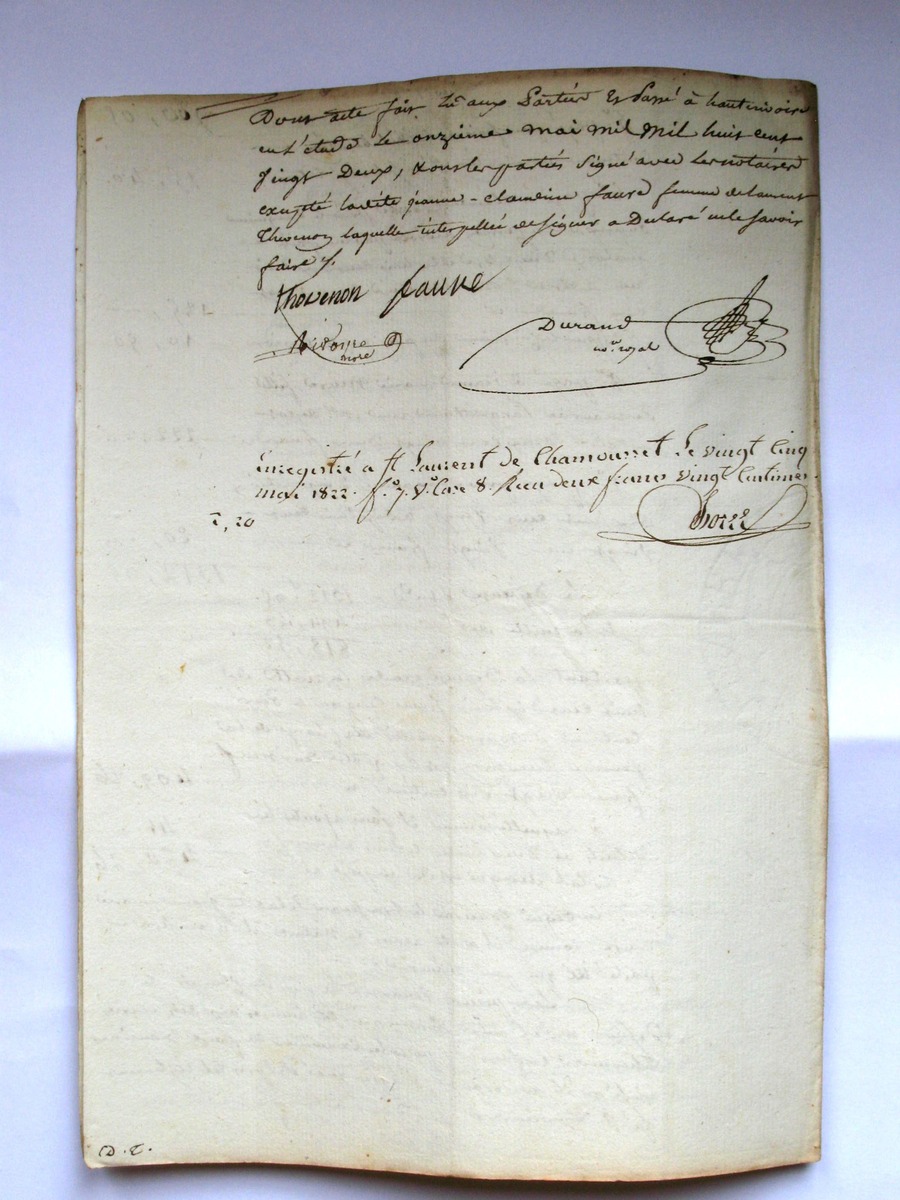 Dont acte fait lu aux Parties et Passé à hauterivoire
en L'étude le onzième mai mil mil huit cent
vingt Deux, tous les parties signé avec les notaires
excepté ladite jeanne-claudine faure femme de laurent
Thevenon laquelle interpellée de signer a Declaré ne le savoir
faire
thevenon faure
Durand
nore royal
nore
Enregistré a St Laurent de Chamousset Le vingt cinq
mai 1822. fo 7. Vo Case 8. Recu deux francs vingt Centimes.
2,20
D. T.